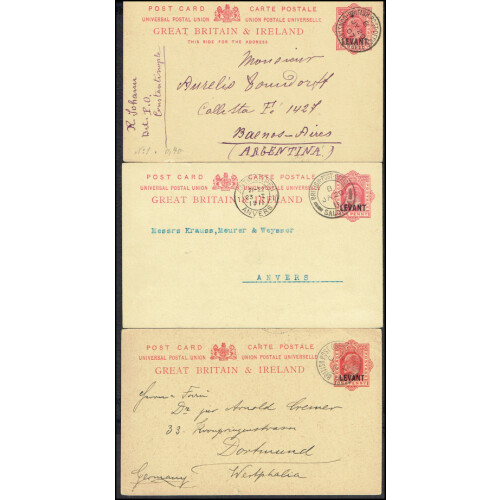 POST CARD CARTE POSTALE
UNIVERSAL POSTAL UNION UNION POSTALE UNIVERSELLE
GREAT BRITAIN & IRELAND
THIS SIDE FOR THE ADDRESS
LEVANT
Monsieur
Aurelio
Calle Sta Fé 1427
Buenos-Aires
(ARGENTINA)
R. Johann
P.O.
Constantinople
POST CARD CARTE POSTALE
UNIVERSAL POSTAL UNION UNION POSTALE UNIVERSELLE
GREAT BRITAIN & IRELAND
LEVANT
ANVERS
BRITISH
Messrs Krauss, Meurer & Weysser
ANVERS
POST CARD CARTE POSTALE
UNIVERSAL POSTAL UNION UNION POSTALE UNIVERSELLE
GREAT BRITAIN & IRELAND
LEVANT
Herrn
Dr jur Arnold Cremer
33. Kronprinzenstrasse
Dortmund
Germany Westphalia